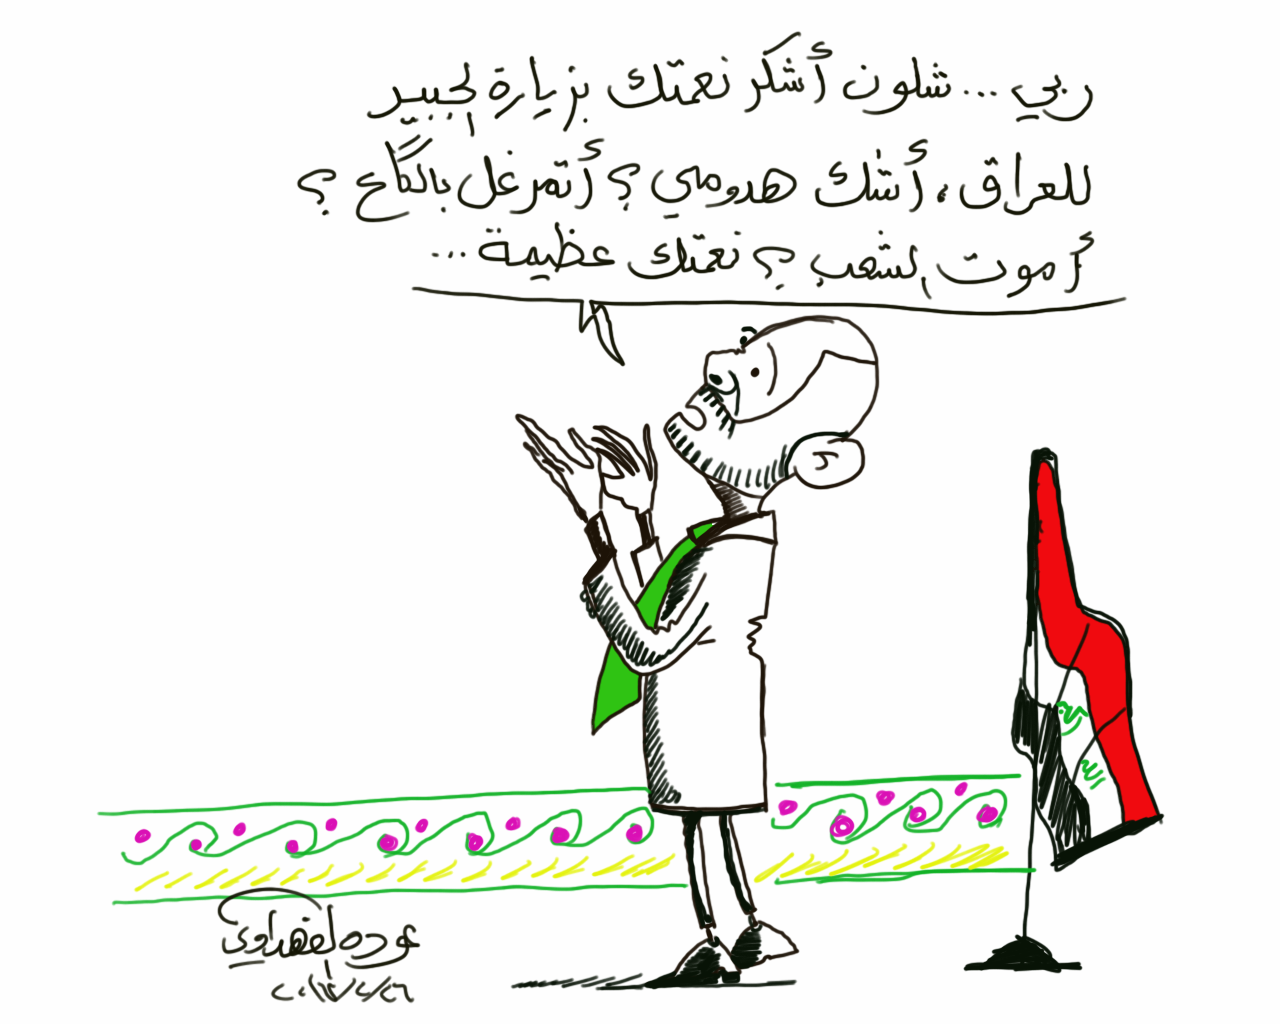 ربي ... شلون أشكر نعمتك بزيارة الجبير
للعراق، أشك هدومي؟ أتمرغل بالگاع؟
أموت الشعب؟ نعمتك عظيمة ...
الله
عوده الفهداوي